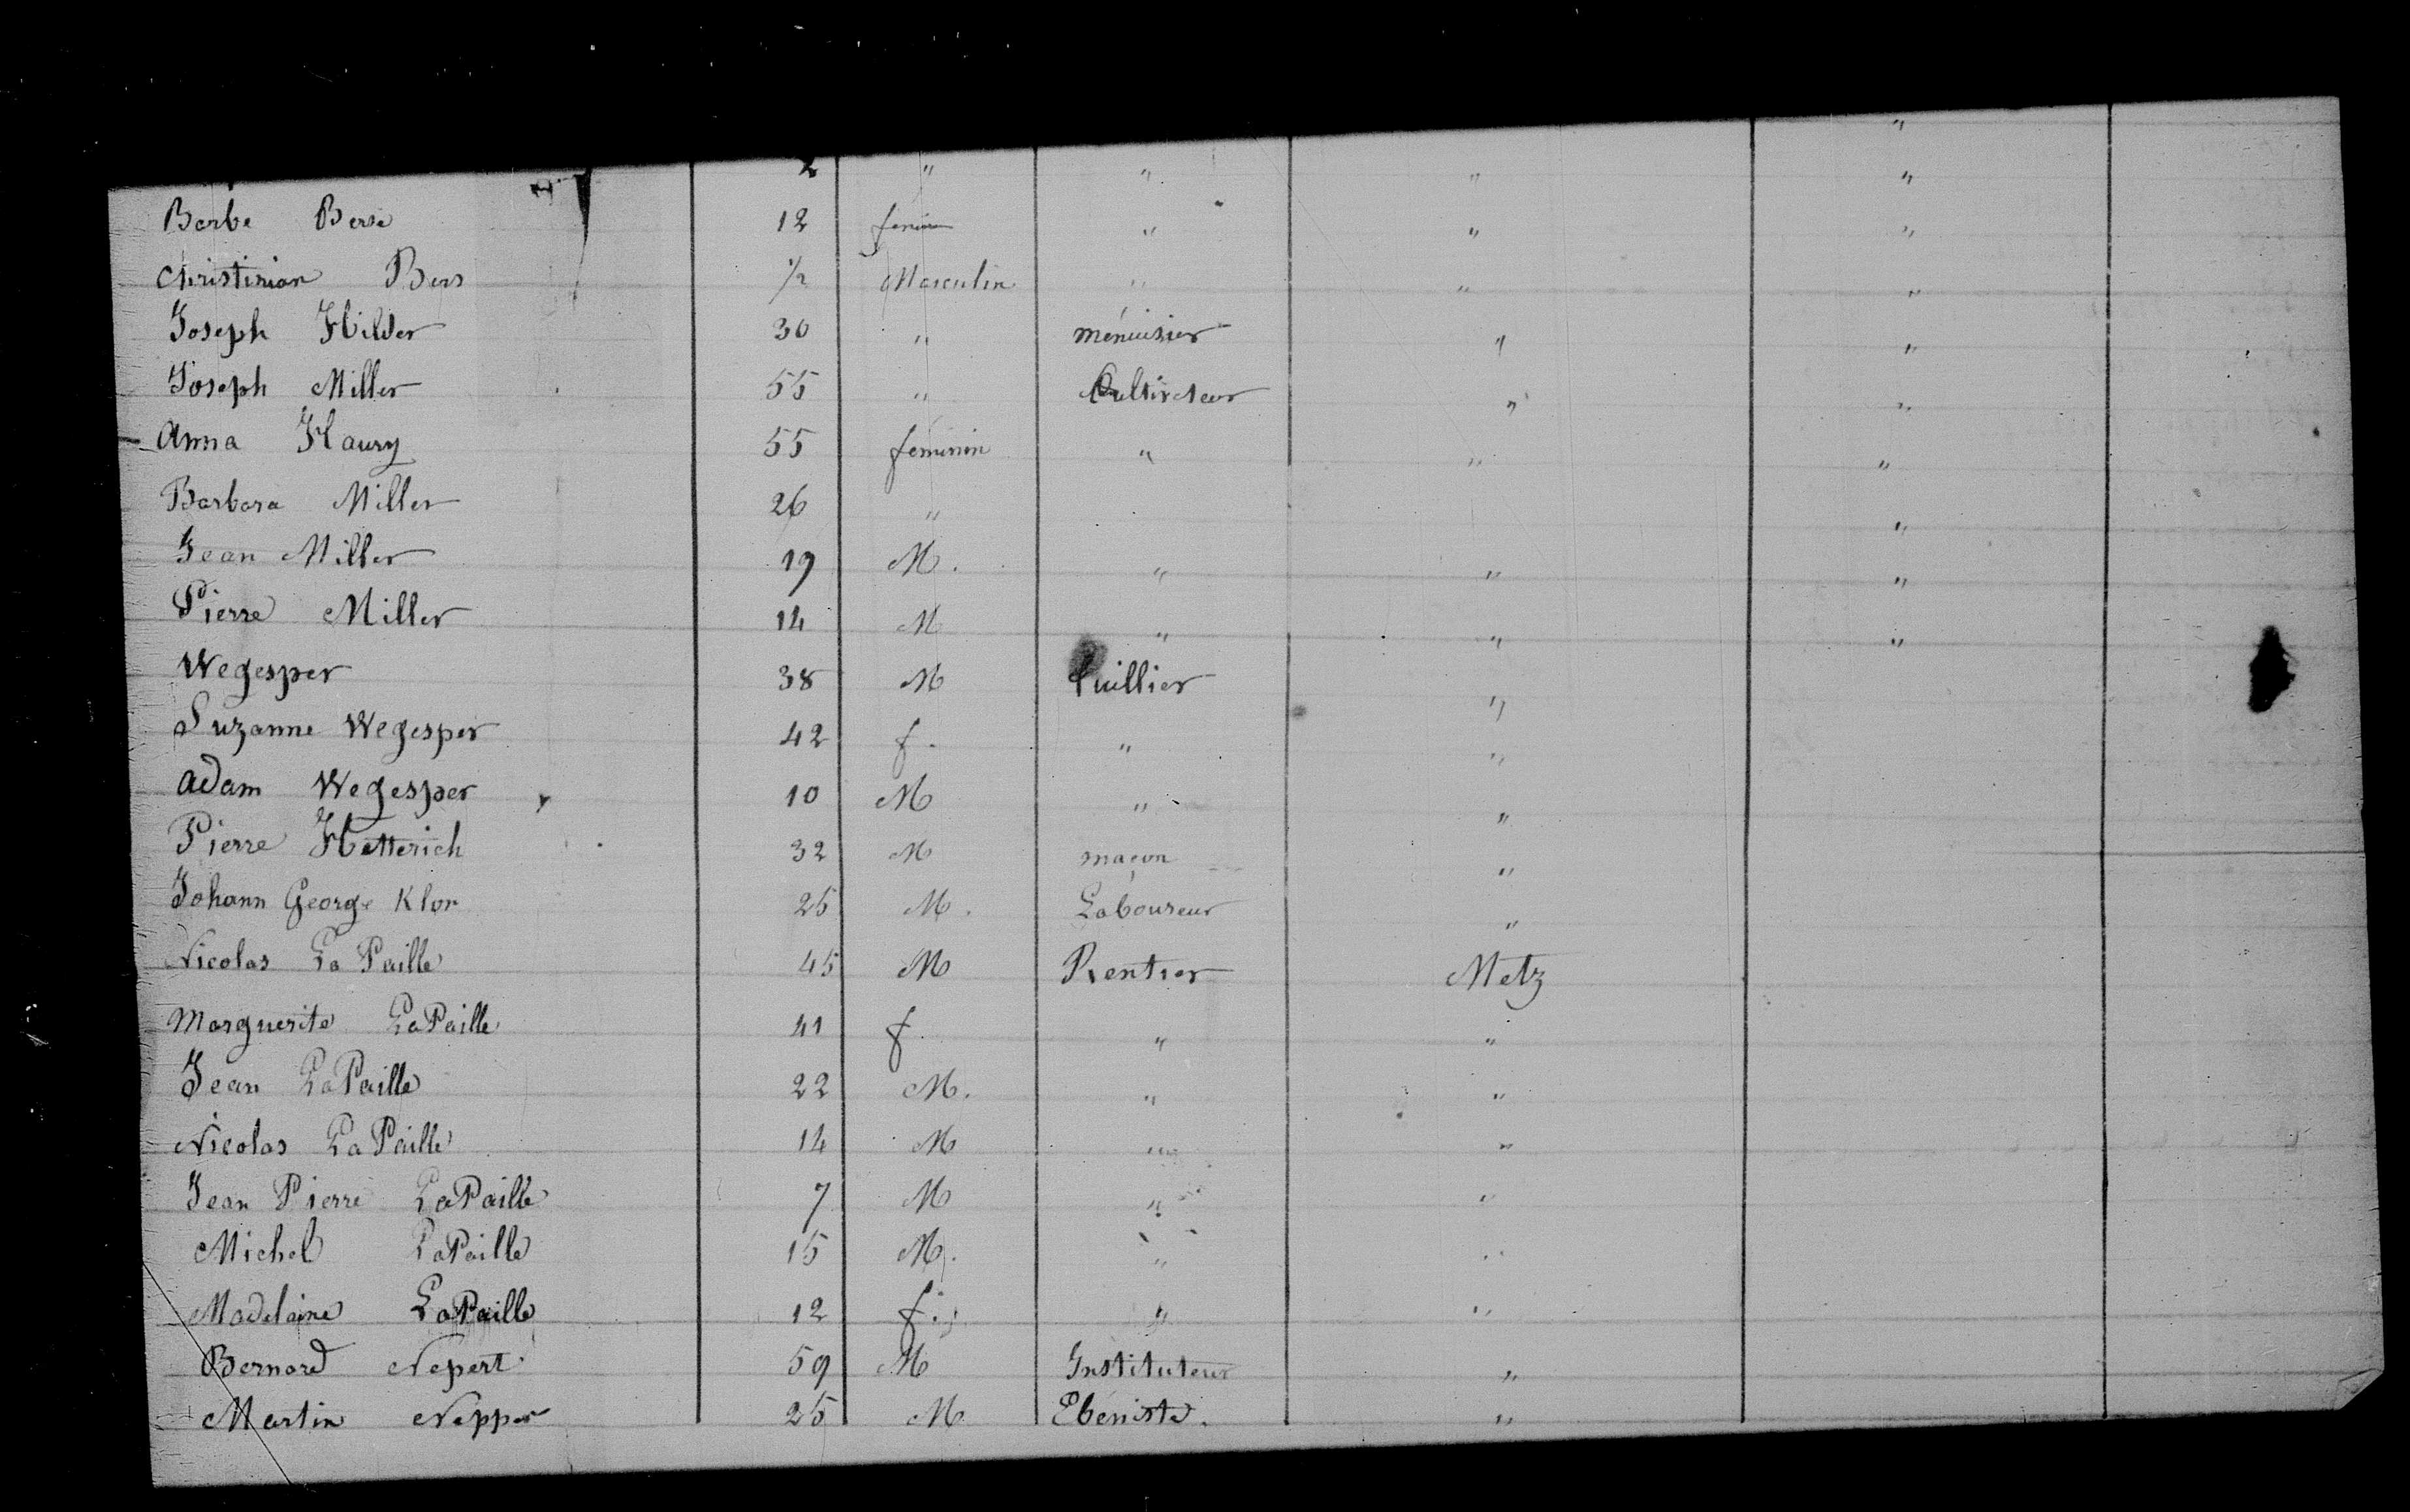 2 " " " "
Barbe Berse 12 femin " " "
Christinian Bers 1/2 Masculin " " "
Joseph Hilser 30 " ménuisier " "
Joseph Miller 55 " Cultivateur " "
Anna Haury 55 feminin " " "
Barbara Miller 26 " "
Jean Miller 19 M. " " "
Pierre Miller 14 M " " "
Wegesper 38 M Tuillier "
Suzanne Wegesper 42 f. " "
Adam Wegesper 10 M " "
Pierre Hetterich 32 M maçon "
Johann George Klor 25 M. Laboureur "
Nicolas La Paille 45 M Rentier Metz
Marguerite LaPaille 41 f " "
Jean LaPaille 22 M. " "
Nicolas La Paille 14 M " "
Jean Pierre LaPaille 7 M " "
Michel LaPaille 15 M. " "
Madelaine LaPaille 12 f. " "
Bernard Nepert 59 M Instituteur "
Martin Nepper 25 M Ebéniste. "